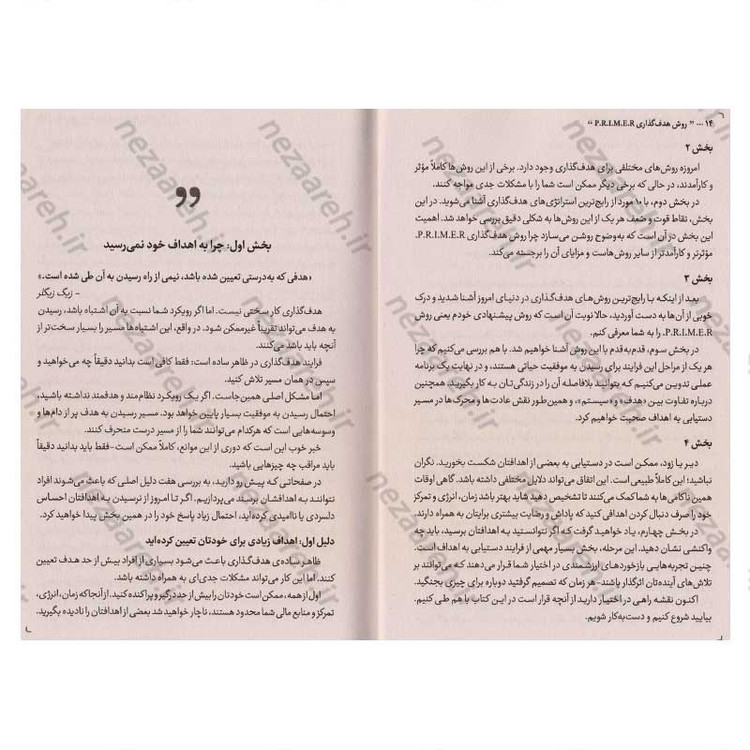 ۱۴ ... ” روش هدف‌گذاری P.R.I.M.E.R “
بخش ۲
امروزه روش‌های مختلفی برای هدف‌گذاری وجود دارد. برخی از این روش‌ها کاملاً مؤثر
و کارآمدند، در حالی که برخی دیگر ممکن است شما را با مشکلات جدی مواجه کنند.
در بخش دوم، با ۱۰ مورد از رایج‌ترین استراتژی‌های هدف‌گذاری آشنا می‌شوید. در این
بخش، نقاط قوت و ضعف هر یک از این روش‌ها به شکلی دقیق بررسی خواهد شد. اهمیت
این بخش در آن است که به‌وضوح روشن می‌سازد چرا روش هدف‌گذاری P.R.I.M.E.R،
مؤثرتر و کارآمدتر از سایر روش‌هاست و مزایای آن را برجسته می‌کند.
بخش ۳
بعد از اینکه با رایج‌ترین روش‌های هدف‌گذاری در دنیای امروز آشنا شدید و درک
خوبی از آن‌ها به دست آوردید، حالا نوبت آن است که روش پیشنهادی خودم یعنی روش
P.R.I.M.E.R. را به شما معرفی کنم.
در بخش سوم، قدم‌به‌قدم با این روش آشنا خواهیم شد. با هم بررسی می‌کنیم که چرا
هر یک از مراحل این فرایند برای رسیدن به موفقیت حیاتی هستند، و در نهایت یک برنامه
عملی تدوین می‌کنیم که بتوانید بلافاصله آن را در زندگی‌تان به کار بگیرید. همچنین
درباره تفاوت بین «هدف» و «سیستم»، و همین‌طور نقش عادت‌ها و محرک‌ها در مسیر
دستیابی به اهداف صحبت خواهیم کرد.
بخش ۴
دیر یا زود، ممکن است در دستیابی به بعضی از اهدافتان شکست بخورید. نگران
نباشید؛ این کاملاً طبیعی است. این اتفاق می‌تواند دلایل مختلفی داشته باشد. گاهی اوقات
همین ناکامی‌ها به ما کمک می‌کنند تا تشخیص دهید شاید بهتر باشد زمان، انرژی و تمرکز
خود را صرف دنبال کردن اهدافی کنید که پاداش و رضایت بیشتری برایتان به همراه دارند.
در بخش چهارم، یاد خواهید گرفت که اگر نتوانستید به اهدافتان برسید، باید چه
واکنشی نشان دهید. این مرحله، بخش بسیار مهمی از فرایند دستیابی به اهداف است.
چنین تجربه‌هایی بازخوردهای ارزشمندی در اختیار شما قرار می‌دهند که می‌توانند بر
تلاش‌های آینده‌تان اثرگذار باشند-هر زمان که تصمیم گرفتید دوباره برای چیزی بجنگید.
اکنون نقشه راهی در اختیار دارید از آنچه قرار است در این کتاب با هم طی کنیم.
بیایید شروع کنیم و دست‌به‌کار شویم.
بخش اول: چرا به اهداف خود نمی‌رسید
«هدفی که به‌درستی تعیین شده باشد، نیمی از راه رسیدن به آن طی شده است.»
- زیگ زیگلر
هدف‌گذاری کار سختی نیست. اما اگر رویکرد شما نسبت به آن اشتباه باشد، رسیدن
به هدف می‌تواند تقریباً غیرممکن شود. در واقع، این اشتباه‌ها مسیر را بسیار سخت‌تر از
آنچه باید باشد می‌کنند.
فرایند هدف‌گذاری در ظاهر ساده است: فقط کافی است بدانید دقیقاً چه می‌خواهید و
سپس در همان مسیر تلاش کنید.
اما مشکل اصلی همین‌جاست. اگر یک رویکرد نظام‌مند و هدفمند نداشته باشید،
احتمال رسیدن به موفقیت بسیار پایین خواهد بود. مسیر رسیدن به هدف پر از دام‌ها و
وسوسه‌هایی است که هرکدام می‌توانند شما را از مسیر درست منحرف کنند.
خبر خوب این است که دوری از این موانع، کاملاً ممکن است-فقط باید بدانید دقیقاً
باید مراقب چه چیزهایی باشید.
در صفحاتی که پیش رو دارید، به بررسی هفت دلیل اصلی که باعث می‌شوند افراد
نتوانند به اهدافشان برسند می‌پردازیم. اگر تا امروز از نرسیدن به اهدافتان احساس
دلسردی یا ناامیدی کرده‌اید، احتمال زیاد پاسخ خود را در همین بخش پیدا خواهید کرد.
دلیل اول: اهداف زیادی برای خودتان تعیین کرده‌اید
ظاهر ساده‌ی هدف‌گذاری باعث می‌شود بسیاری از افراد بیش از حد هدف تعیین
کنند. اما این کار می‌تواند مشکلات جدی‌ای به همراه داشته باشد.
اول از همه، ممکن است خودتان را بیش از حد درگیر و پراکنده کنید. از آنجا که زمان، انرژی،
تمرکز و منابع مالی شما محدود هستند، ناچار خواهید شد بعضی از اهدافتان را نادیده بگیرید.
nezaareh.ir